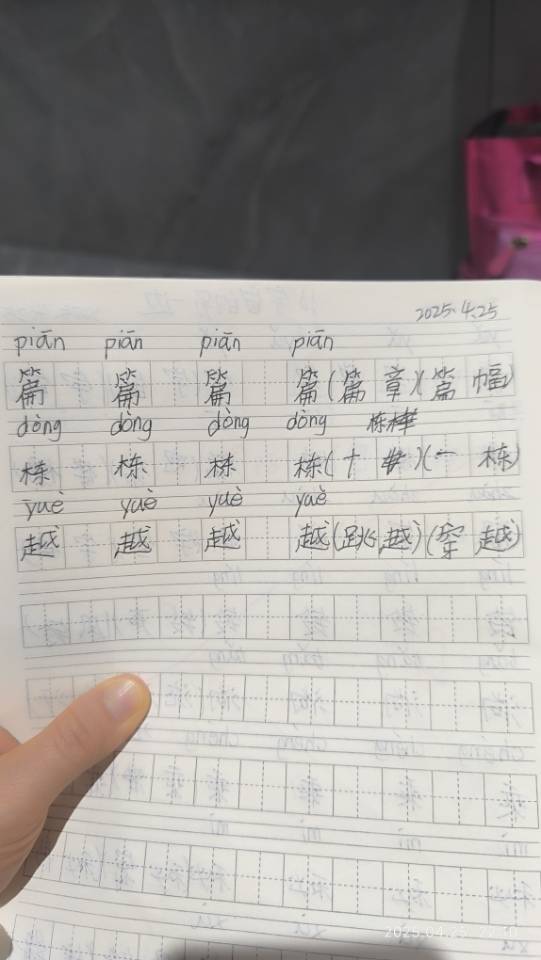 2025.4.25
piān piān piān piān
篇 篇 篇 篇(篇章)(篇幅)
dòng dòng dòng dòng 栋
栋 栋 栋 栋(十)(一栋)
yuè yuè yuè yuè
越 越 越 越(跳越)(穿越)